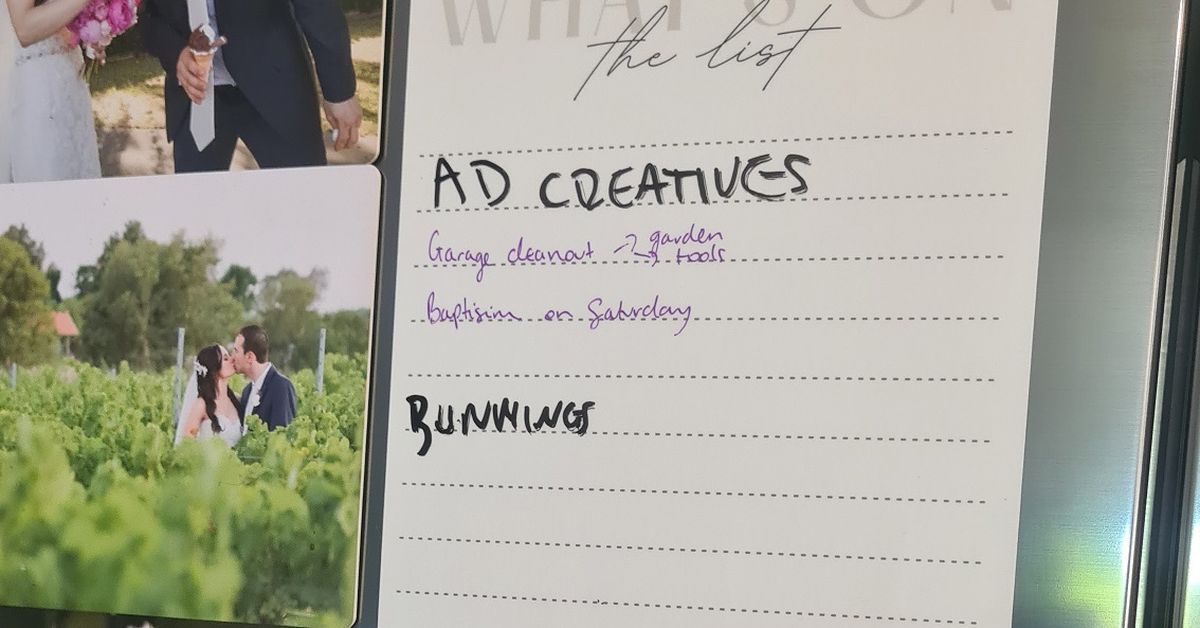 WHAT'S ON
the list
AD CREATIVES
Garage cleanout → garden
→ tools
Baptisim on Saturday
BUNNINGS